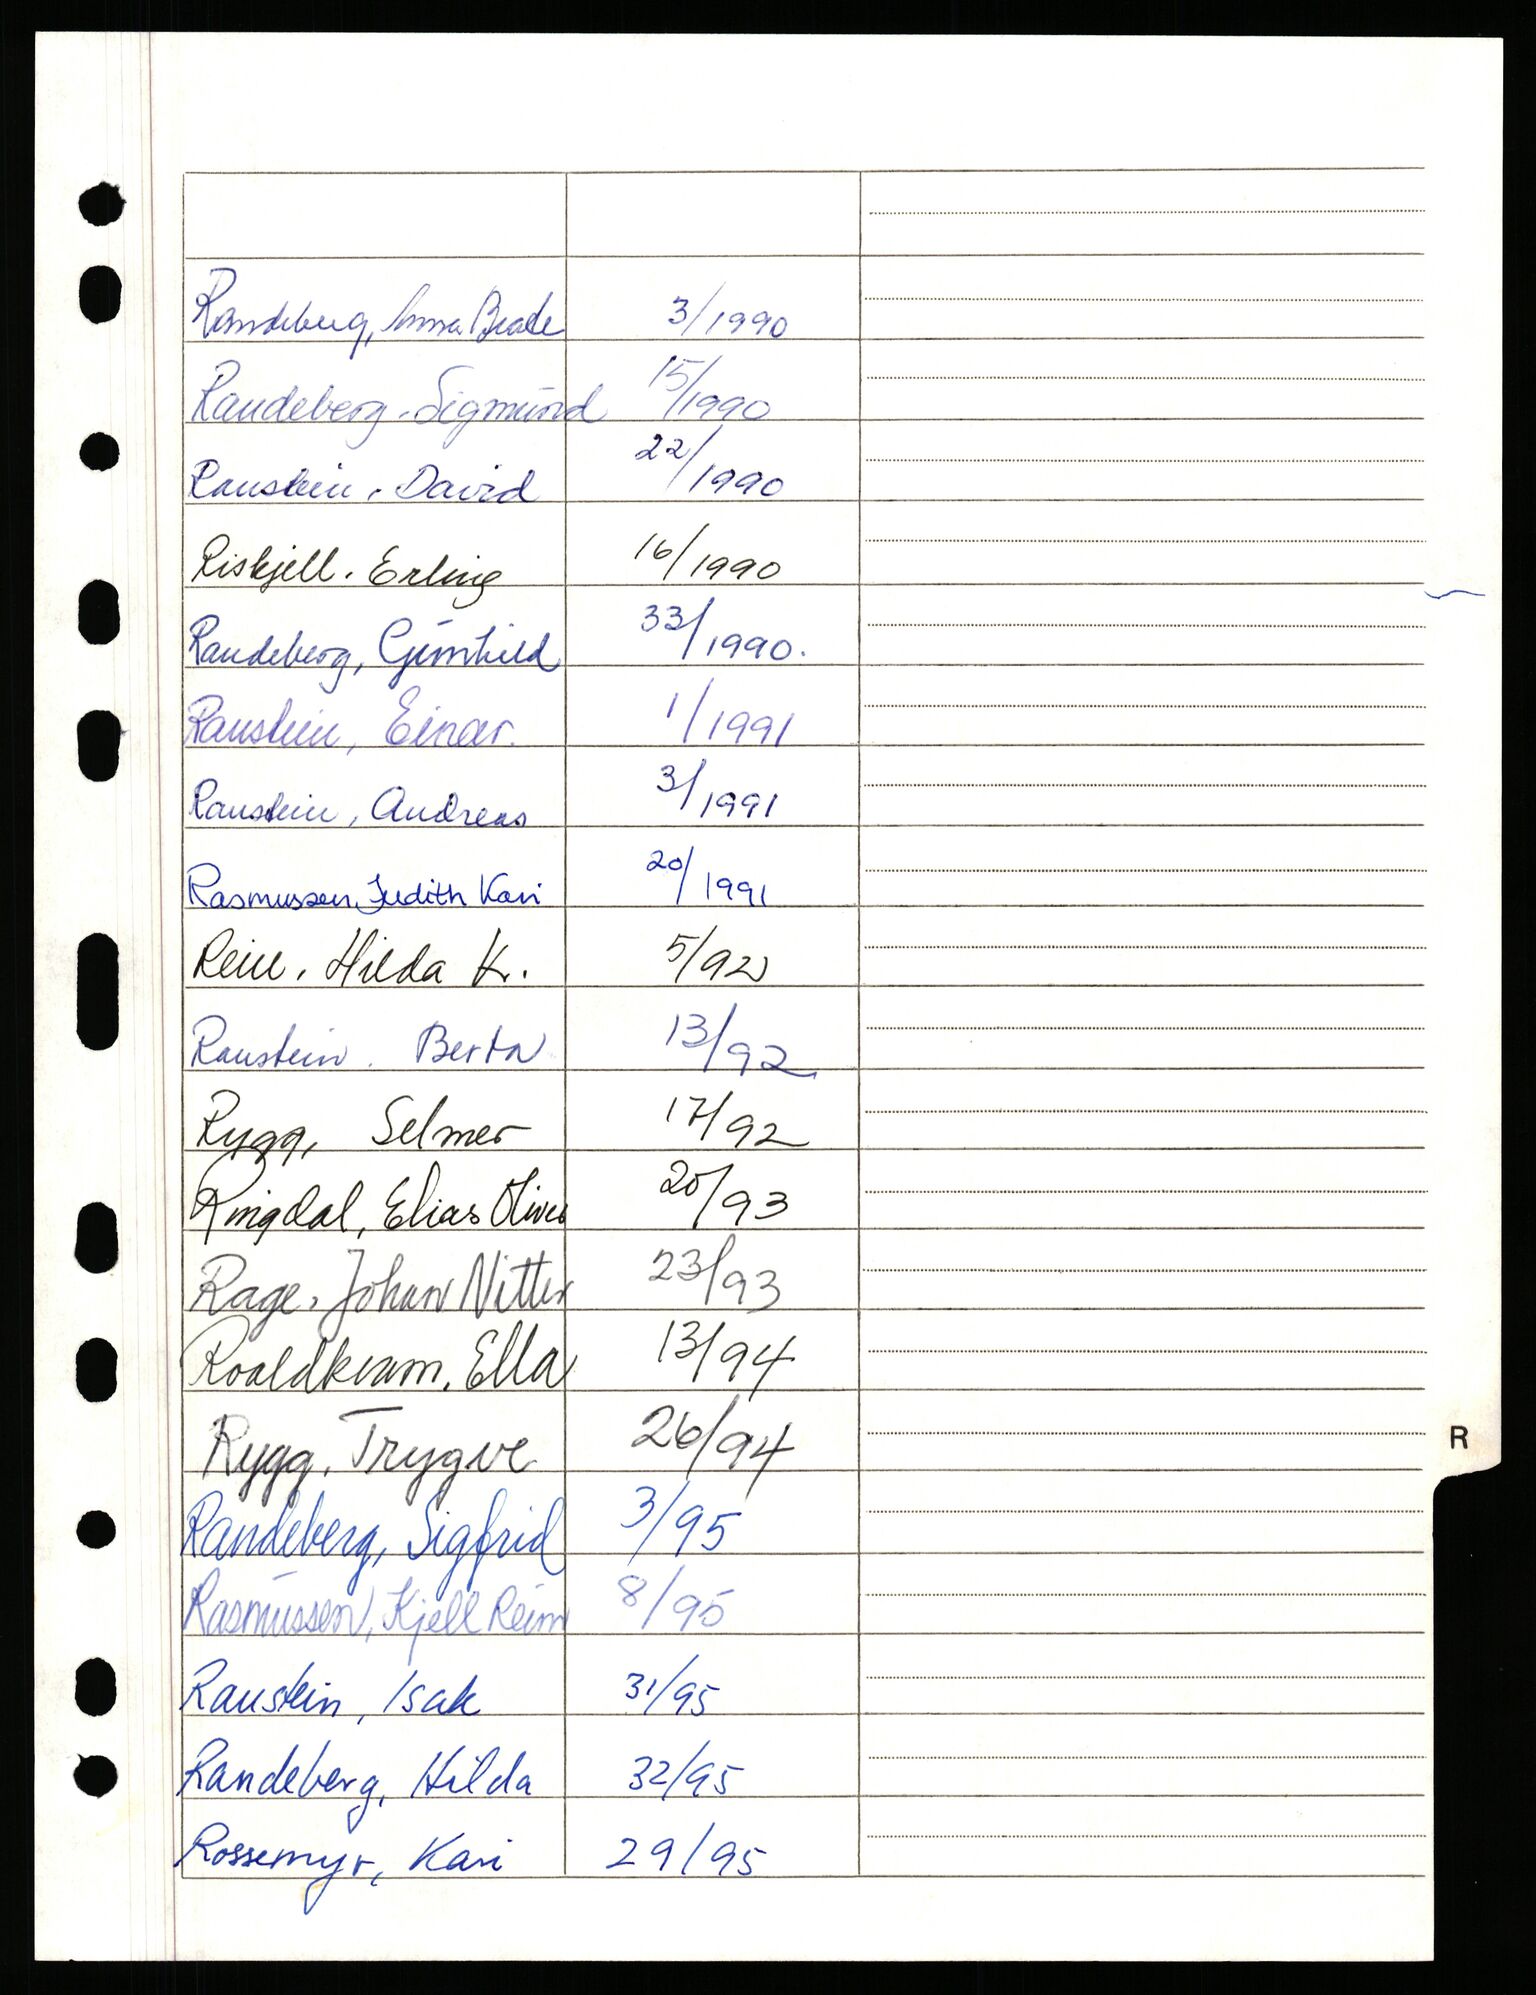 Randeberg, Anna Beate 3/1990
Randeberg, Sigmund 15/1990
Raustein, David 22/1990
Riskjell, Erling 16/1990
Randeberg, Gunhild 33/1990.
Raustein, Einar. 1/1991
Raustein, Andreas 3/1991
Rasmussen, Judith Kari 20/1991
Reine, Hilda K. 5/92
Raustein. Berta 13/92
Rygg, Selmer 17/92
Ringdal, Elias Oliver 20/93
Rage, Johan Nitter 23/93
Roaldkvam, Ella 13/94
Rygg, Trygve 26/94
R
Randeberg, Sigfrid 3/95
Rasmussen, Kjell Reim 8/95
Raustein, Isak 31/95
Randeberg, Hilda 32/95
Rossemyr, Kari 29/95